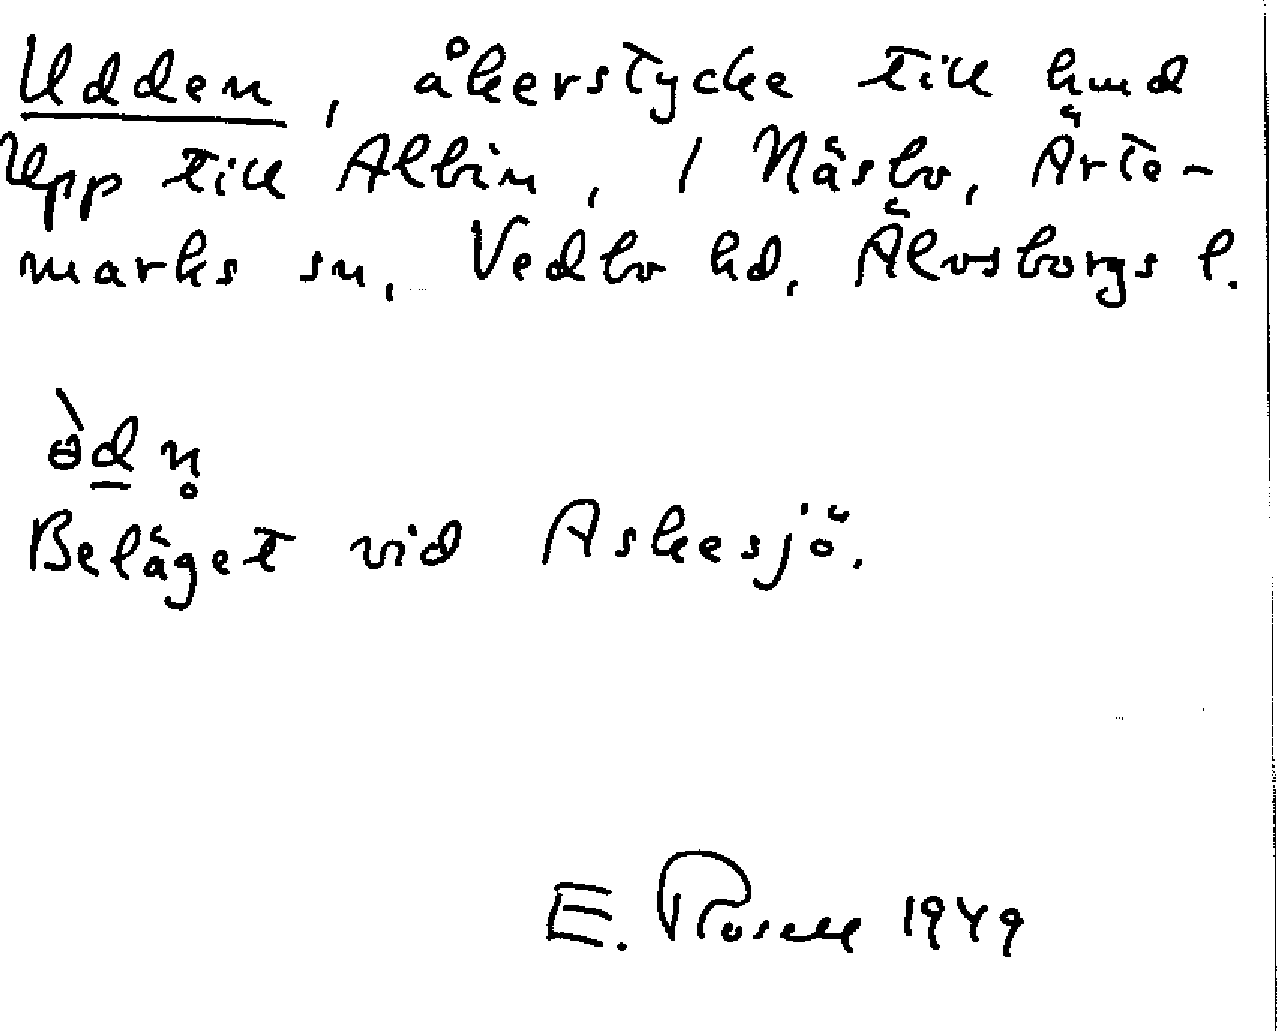 Udden, åkerstycke till hmd
Upp till Albin, 1 Näsbo, Ärte-
marks sn, Vedbo hd, Älvsborgs l.
ɵ̀d n̥
Beläget vid Askesjö.
E. Rosell 1949